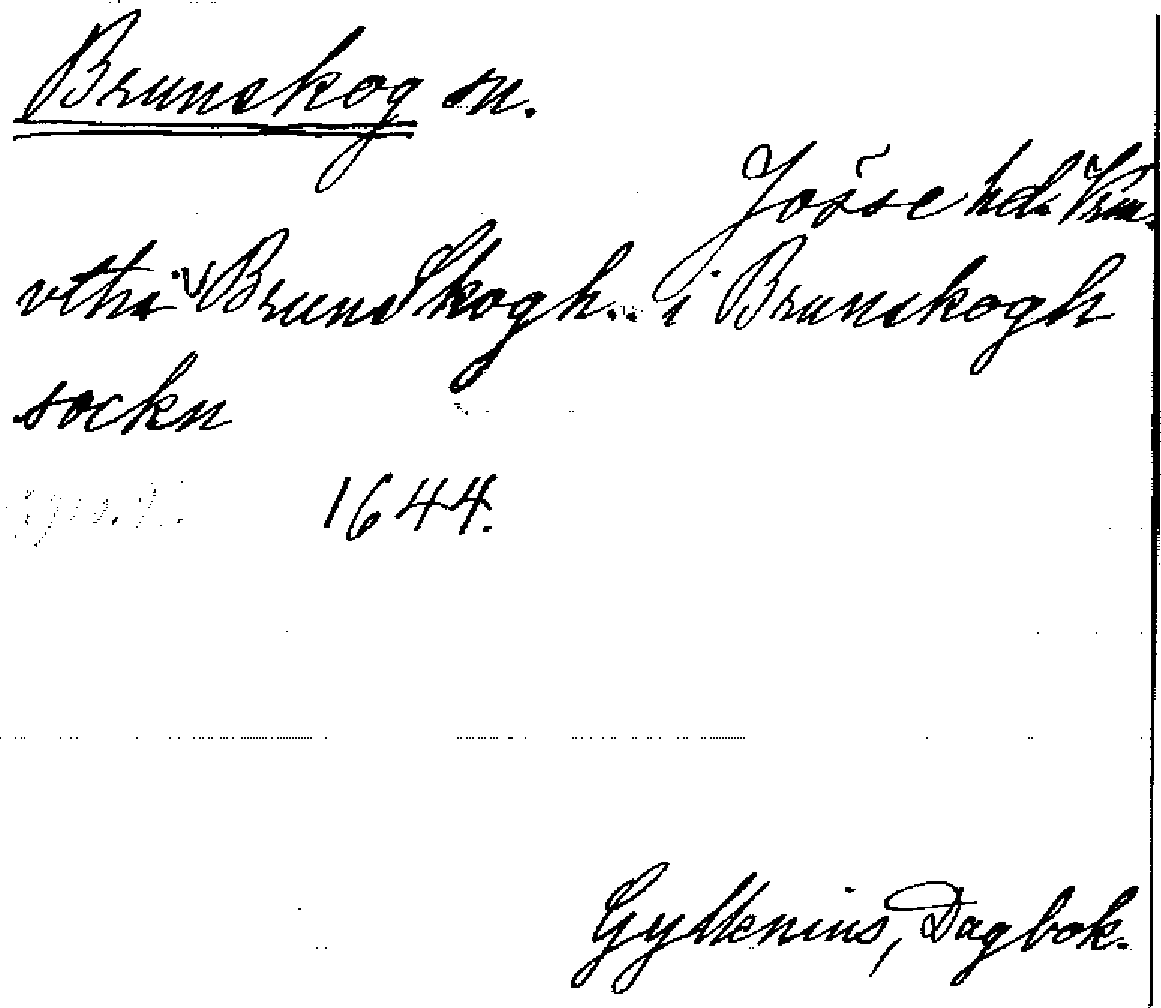 Brunskog sn.
Jösse hd. Vrm.
vthi BrunsSkogh.. i Brunskogh
sockn
1644.
Gyllenius, Dagbok.